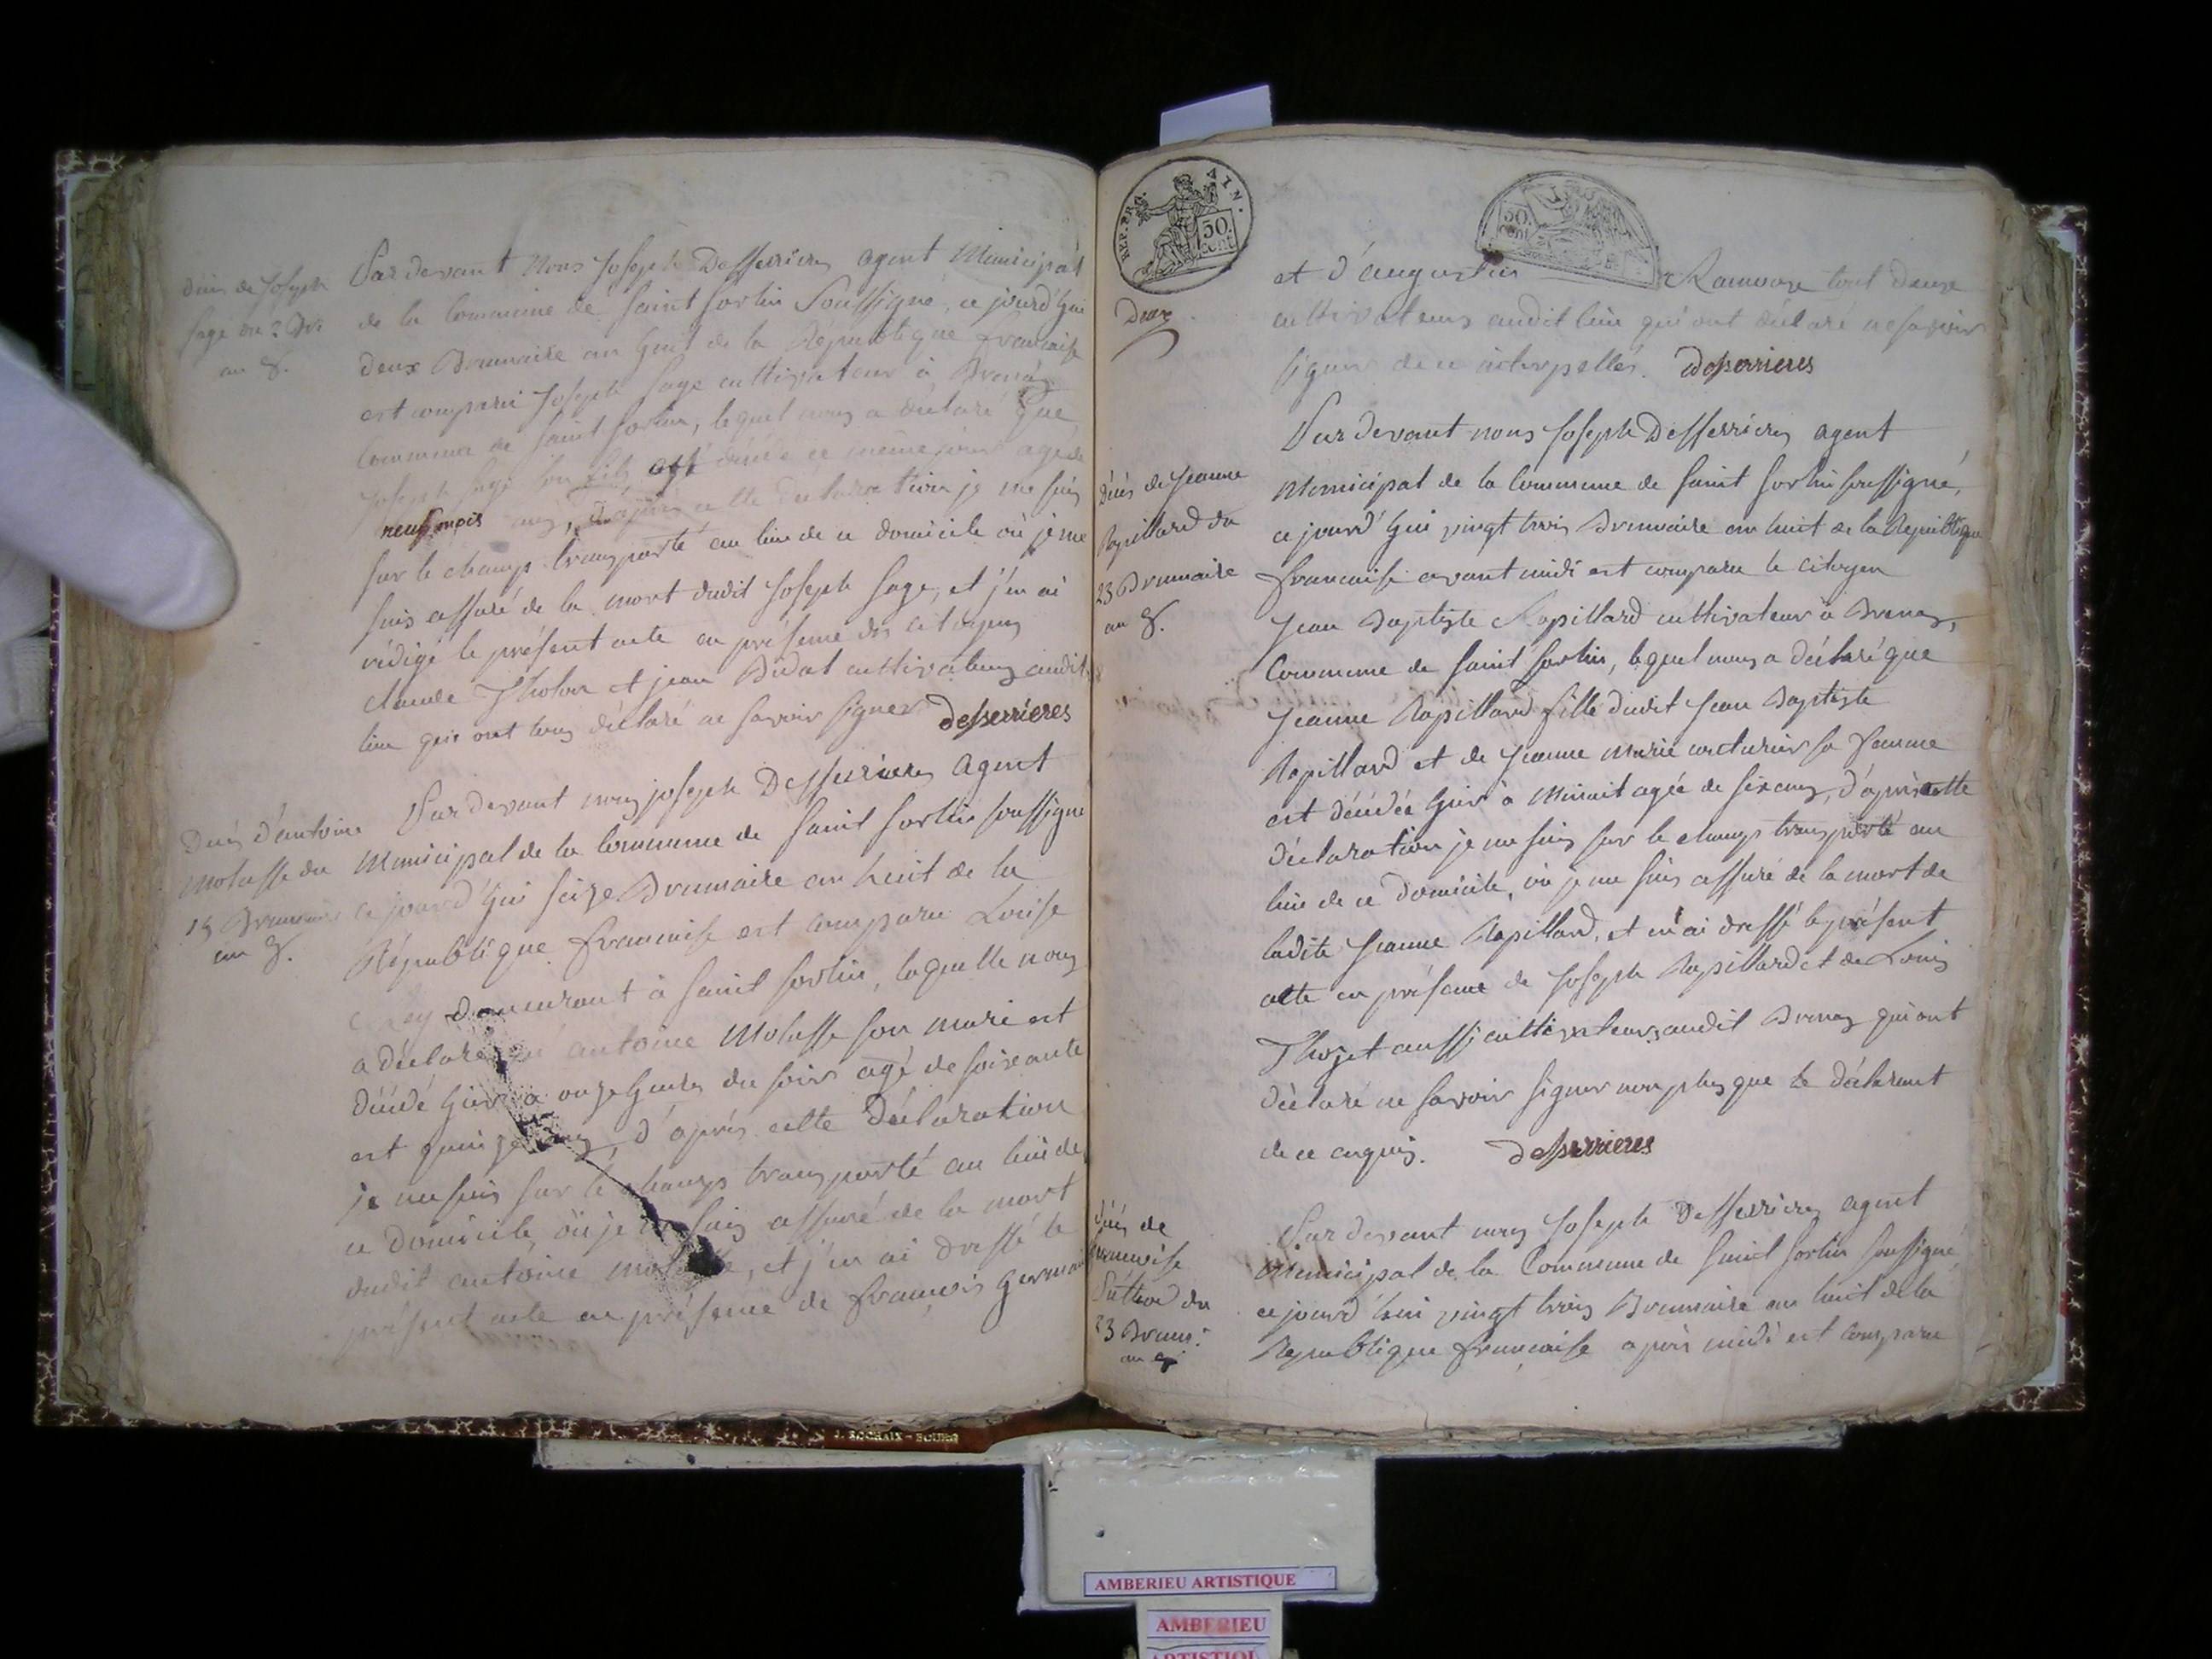 Décès de Joseph
Sage du 2 Bre
an 8.
Par devant nous Joseph Desserrieres agent Municipal
de la Commune de Saint Sorlin Soussigné, ce jourd'hui
deux Brumaire an huit de la République francaise
est comparu Joseph Sage cultivateur à Brenaz
Commune de Saint Sorlin, lequel nous a déclaré que
Joseph Sage son fils est décédé ce même jour agé de
neuf mois ans, d'après cette déclaration je me suis
sur le champs transporté au lieu de ce domicile où je me
suis assuré de la mort dudit Joseph Sage, et j'en ai
rédigé le présent acte en présence des citoyens
claude et jean Bidat cultivateurs audit
lieu qui ont tous déclaré ne savoir signer desserrieres
Décès d'antoine
Molasse du
15 Brumaire
an 8.
Par devant nous joseph Desserrieres agent
Municipal de la Commune de Saint Sorlin soussigné
ce jourd'hui seize Brumaire an huit de la
République francaise est comparu Louise
demeurant à Saint Sorlin, laquelle nous
a déclaré antoine Molasse son mari est
décédé hier à onze heures du soir agé de soixante
et quinze ans, d'après cette déclaration
je me suis sur le champs transporté au lieu de
ce domicile, où je me suis assuré de la mort
dudit antoine molasse, et j'en ai dressé le
présent acte en présence de francois germain
REP. FRA. AIN.
50. cent
Deux
50. cent
et d'augustin Ramouse tout deux
cultivateurs audit lieu qui ont déclaré ne savoir
signer de ce interpellés. desserrieres
Décès de Jeanne
Rapillard du
23 Brumaire
an 8.
Par devant nous Joseph Desserrieres agent
Municipal de la Commune de Saint Sorlin soussigné,
ce jourd'hui vingt trois Brumaire an huit de la République
francaise avant midi est comparu le citoyen
Jean Baptiste Rapillard cultivateur à Brenaz,
Commune de Saint Sorlin, lequel nous a déclaré que
Jeanne Rapillard fille dudit Jean Baptiste
Rapillard et de Jeanne Marie couturier sa femme
est décédée hier à Minuit agée de six ans, d'après cette
déclaration je me suis sur le champs transporté au
lieu de ce domicile, où je me suis assuré de la mort de
ladite Jeanne Rapillard, et en ai dressé le présent
acte en présence de Joseph Rapillard et de Louis
Thojet aussi cultivateurs audit Brenaz qui ont
déclaré ne savoir signer non plus que le déclarant
de ce enquis. desserrieres
Décès de
francoise
du
23 Brum.
an 8
Par devant nous Joseph Desserrieres agent
Municipal de la Commune de Saint Sorlin soussigné
ce jourd'hui vingt trois Brumaire an huit de la
République francaise après midi est comparu
J. ROCHAIX - BOURG
AMBERIEU ARTISTIQUE
AMBERIEU
ARTISTIQUE